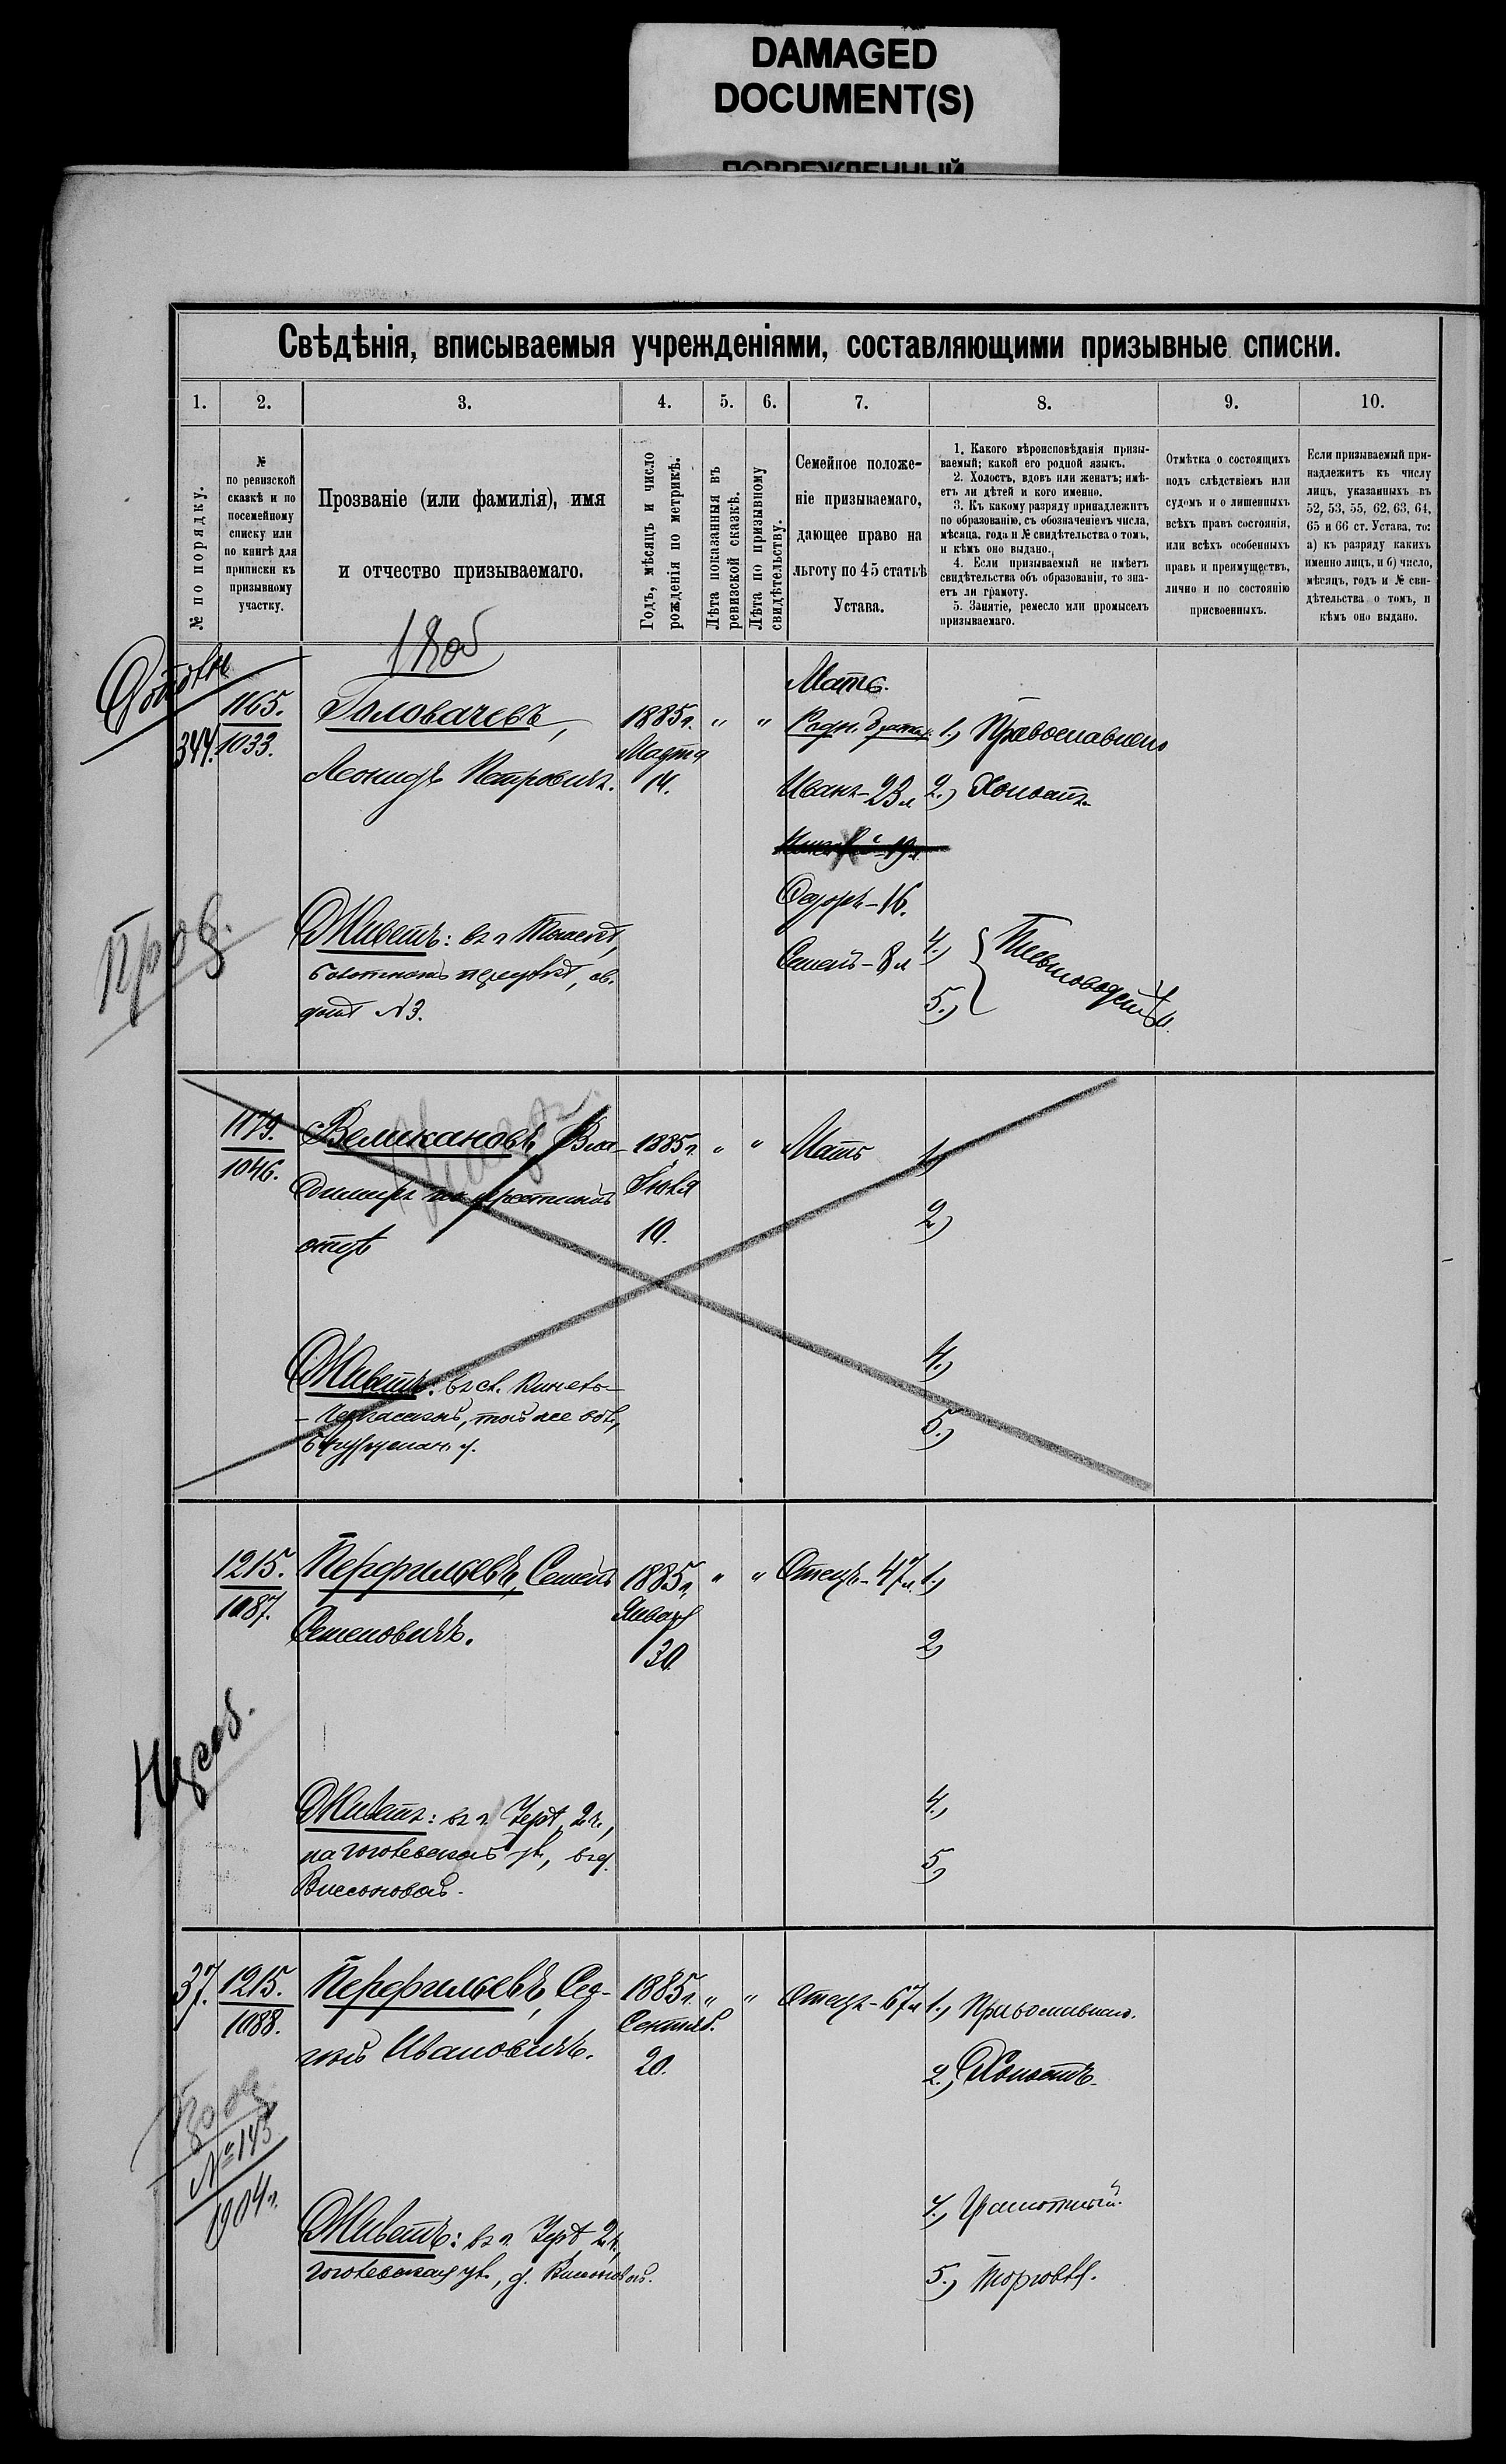 DAMAGED
DOCUMENT(S)
ПОВРЕЖДЕННЫЙ
Свѣдѣнія, вписываемыя учрежденіями, составляющими призывные списки.
1. 2. 3. 4. 5. 6. 7. 8. 9. 10.
№ по порядку.
№
по ревизской
сказкѣ и по
посемейному
списку или
по книгѣ для
приписки къ
призывному
участку.
Прозваніе (или фамилія), имя
и отчество призываемаго.
Годъ, мѣсяцъ и число
рожденія по метрикѣ.
Лѣта показанныя въ
ревизской сказкѣ.
Лѣта по призывному
свидѣтельству.
Семейное положе-
ніе призываемаго,
дающее право на
льготу по 45 статьѣ
Устава.
1. Какого вѣроисповѣданія призы-
ваемый; какой его родной языкъ.
2. Холостъ, вдовъ или женатъ; имѣ-
етъ ли дѣтей и кого именно.
3. Къ какому разряду принадлежитъ
по образованію, съ обозначеніемъ числа,
мѣсяца, года и № свидѣтельства о томъ,
и кѣмъ оно выдано.
4. Если призываемый не имѣетъ
свидѣтельства объ образованіи, то зна-
етъ ли грамоту.
5. Занятіе, ремесло или промыселъ
призываемаго.
Отмѣтка о состоящихъ
подъ слѣдствіемъ или
судомъ и о лишенныхъ
всѣхъ правъ состоянія,
или всѣхъ особенныхъ
правъ и преимуществъ,
лично и по состоянію
присвоенныхъ.
Если призываемый при-
надлежитъ къ числу
лицъ, указанныхъ въ
52, 53, 55, 62, 63, 64,
65 и 66 ст. Устава, то:
а) къ разряду какихъ
именно лицъ, и б) число,
мѣсяцъ, годъ и № сви-
дѣтельства о томъ, и
кѣмъ оно выдано.
344.
1165.
1033.
Головачевъ,
Леонидъ Петровичъ.
1885 г.
Марта
14.
" "
Мать.
Родн. братья
Иванъ - 23 л
Федоръ - 16.
Семенъ - 8 л
1.) Православный
2.) Холостъ.
4.)
5.)
Живетъ: въ г.
д. № 3.
1179.
1046.
Великановъ, Вла-
димиръ по крестному
отцу
1885 г.
Іюля
10.
" "
Мать
1.)
2.)
4.)
5.)
Живетъ: въ сл. Кинель-
-Черкасской, той же вол.,
Бугурусланъ у.
1215.
1087.
Перфильевъ, Семенъ
Семеновичъ.
1885 г.
Январ
30.
" "
Отецъ - 47 л.
1.)
2.)
4.)
5.)
Живетъ: въ г. 2 ч.,
на Гоголевской ул., въ д.
37.
1215.
1088.
Перфильевъ, Сер-
гѣй Ивановичъ.
1885 г.
Сентяб.
20.
" "
Отецъ - 67 л
1.) Православный.
2.) Холостъ.
4.) Грамотный.
5.) Торговля.
№ 143
1904 г.
Живетъ: въ г. 2 ч.,
Гоголевская ул., д.